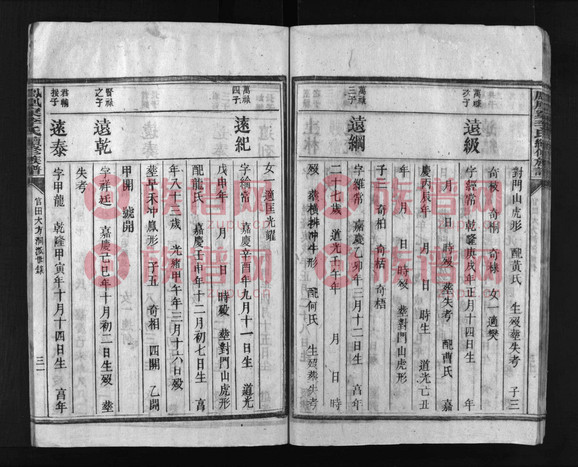 對門山虎形 配黃氏 生歿葬失考 子三
奇棱 奇桐 奇棣 女一適樊
萬祿次子 遠級
字經常 乾隆庚戌年正月十四日生 年
月 日 時歿葬失考 配曹氏 嘉
慶丙辰年 月 日 時生 道光己丑
年 月 日 時歿 葬對門山虎形
子三 奇柏 奇栝 奇梧
萬祿三子 遠綱
字維常 嘉慶乙卯年三月十二日生 享年
二十七歲 道光壬午年 月 日 時
歿 葬橫排冲牛形 配何氏 生歿葬失考
女一適匡光耀
萬祿四子 遠紀
字綸常 嘉慶辛酉年九月十一日生 道光
戊申年 月 日 時歿 葬對門山虎形
配龍氏 嘉慶壬申年十二月初七日生 享
年六十三歲 光緒甲午年三月十六日歿
葬早禾冲鳳形 子五 奇相 四開 乙開
甲開 號開
賢祿之子 遠乾
字祥廷 嘉慶己巳年十月初二日生歿 葬
失考
君輔接子 遠泰
字甲龍 乾隆甲寅年十月十四日生 享年
官田大方洞
三一
族譜网